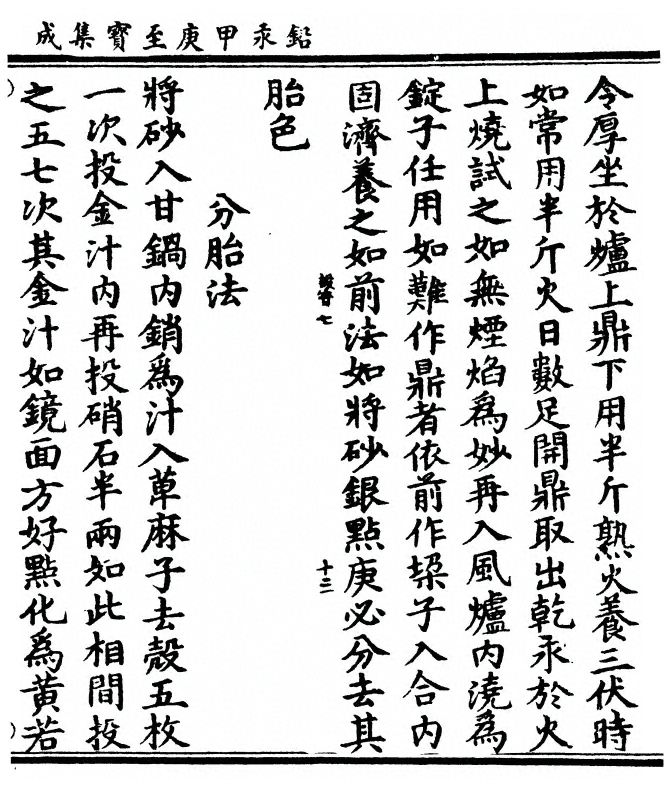 鉛汞甲庚至寶集成
令厚坐於爐上鼎下用半斤熟火養三伏時
如常用半斤火日數足開鼎取出乾汞於火
上燒試之如無煙焰爲妙再入風爐内澆爲
錠子任用如難作鼎者依前作埚子入合内
固濟養之如前法如將砂銀點庚必分去其
胎色
分胎法
將砂入甘鍋内銷爲汁入萆麻子去殼五枚
一次投金汁内再投硝石半兩如此相間投
之五七次其金汁如鏡面方好點化爲黄若
七
十二